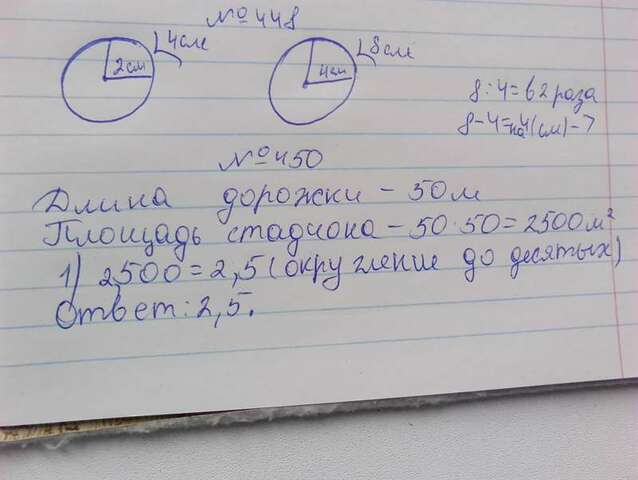 № 448
4см
8см
2см
4см
8:4=в 2 раза
8-4=на 4(см)-?
№ 450
Длина дорожки - 50м
Площадь стадиона - 50·50=2500м²
1) 2,500=2,5 (округление до десятых)
Ответ: 2,5.